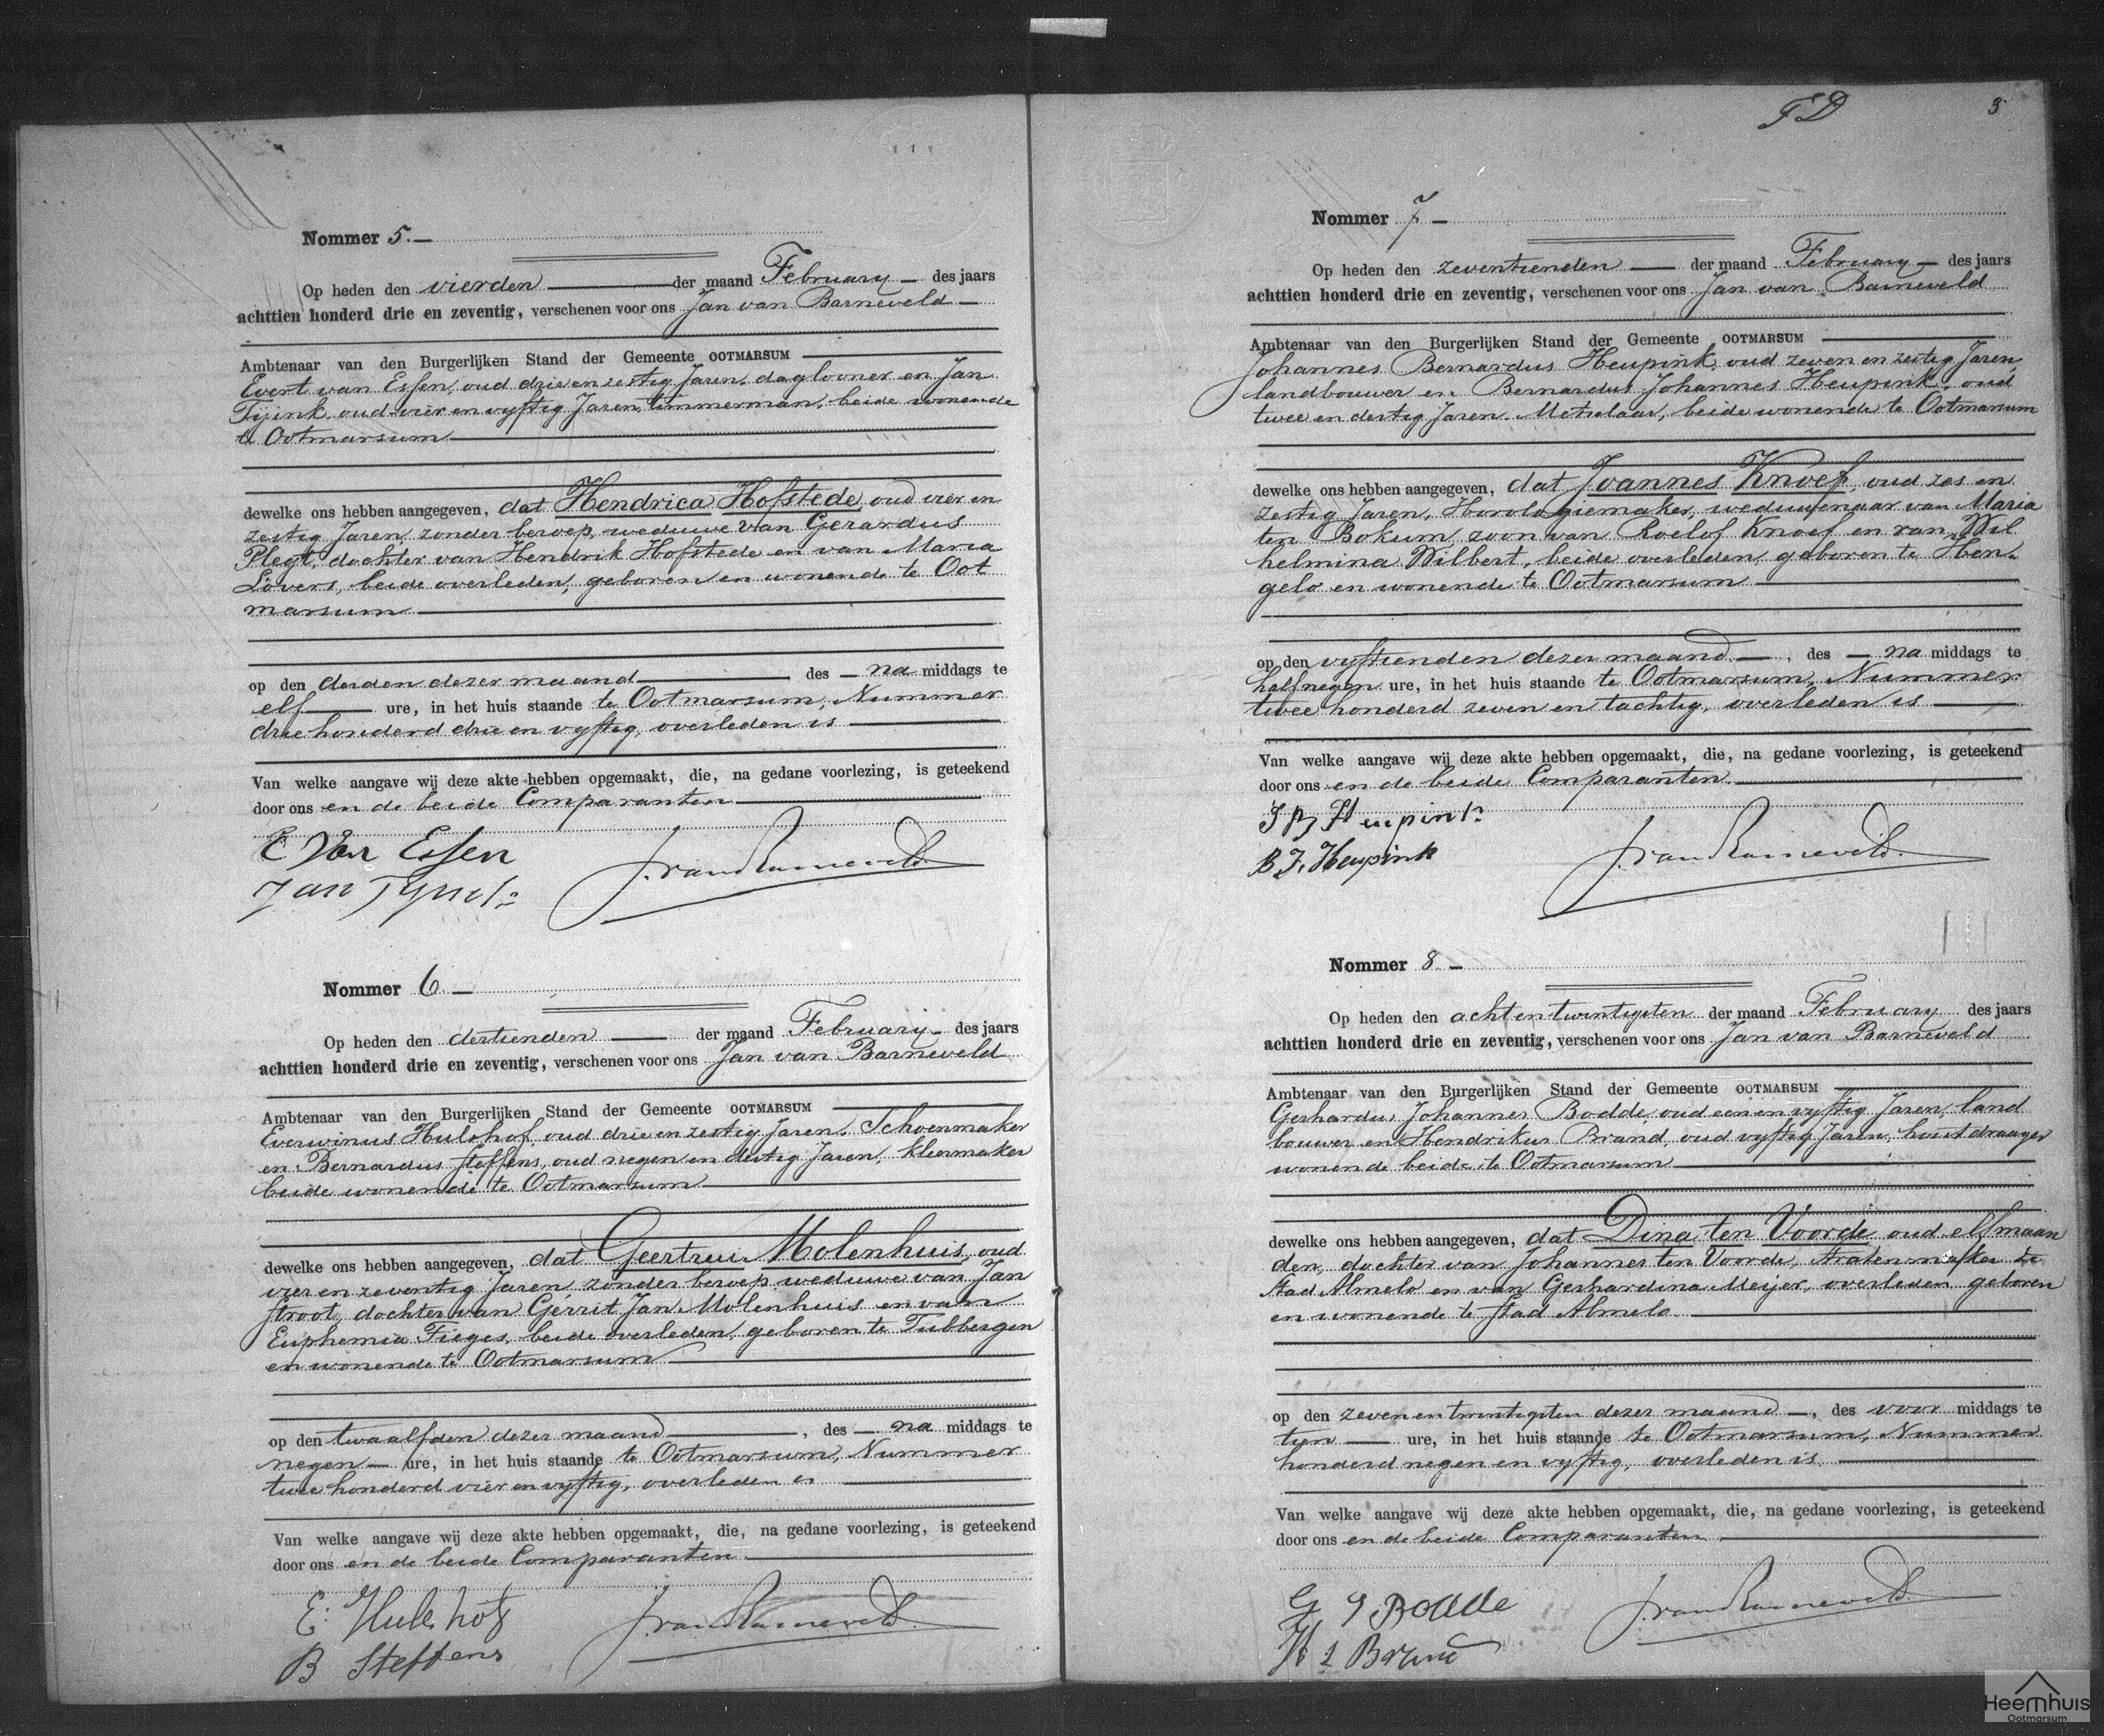 Nommer 5.
Op heden den vierden der maand February des jaars
achttien honderd drie en zeventig, verschenen voor ons Jan van Barneveld
Ambtenaar van den Burgerlijken Stand der Gemeente OOTMARSUM
Evert van Essen, oud drie en zestig Jaren, daglooner en Jan
Tijink, oud vier en vyftig Jaren, timmerman, beide wonende
te Ootmarsum
dewelke ons hebben aangegeven, dat Hendrica Hofstede, oud vier en
zestig Jaren, zonder beroep, weduwe van Gerardus
Plegt, dochter van Hendrik Hofstede en van Maria
Lövers, beide overleden, geboren en wonende te Oot
marsum
op den derden dezer maand, des na middags te
elf ure, in het huis staande te Ootmarsum, Nummer
driehonderd drie en vyftig, overleden is
Van welke aangave wij deze akte hebben opgemaakt, die, na gedane voorlezing, is geteekend
door ons en de beide Comparanten
E Van Essen
Jan Tyink
J. van Barneveld
Nommer 6
Op heden den dertienden der maand February des jaars
achttien honderd drie en zeventig, verschenen voor ons Jan van Barneveld
Ambtenaar van den Burgerlijken Stand der Gemeente OOTMARSUM
Everwinus Hulshof, oud drie en zestig Jaren, Schoenmaker
en Bernardus Steffens, oud negen en dertig Jaren, kleermaker
beide wonende te Ootmarsum
dewelke ons hebben aangegeven, dat Geertrui Molenhuis, oud
vier en zeventig Jaren, zonder beroep weduwe van Jan
Stroot, dochter van Gerrit Jan Molenhuis en van
Euphemia Fieges, beide overleden, geboren te Tubbergen
en wonende te Ootmarsum
op den twaalfden dezer maand, des na middags te
negen ure, in het huis staande te Ootmarsum, Nummer
twee honderd vier en vyftig, overleden is
Van welke aangave wij deze akte hebben opgemaakt, die, na gedane voorlezing, is geteekend
door ons en de beide Comparanten
E. Hulshof
B Steffens
J. van Barneveld
FD 3
Nommer 7
Op heden den zeventienden der maand February des jaars
achttien honderd drie en zeventig, verschenen voor ons Jan van Barneveld
Ambtenaar van den Burgerlijken Stand der Gemeente OOTMARSUM
Johannes Bernardus Heupink, oud zeven en zestig Jaren,
landbouwer en Bernardus Johannes Heupink, oud
twee en dertig Jaren, Metselaar, beide wonende te Ootmarsum
dewelke ons hebben aangegeven, dat Joannes Knoef, oud zes en
zestig Jaren, Horologiemaker, weduwenaar van Maria
ten Bokum, zoon van Roelof Knoef en van Wil
helmina Wilbert, beide overleden, geboren te Hen-
gelo en wonende te Ootmarsum
op den vyftienden dezer maand, des na middags te
half negen ure, in het huis staande te Ootmarsum, Nummer
twee honderd zeven en tachtig, overleden is
Van welke aangave wij deze akte hebben opgemaakt, die, na gedane voorlezing, is geteekend
door ons en de beide Comparanten
J B Heupink
B J. Heupink
J. van Barneveld
Nommer 8.
Op heden den achtentwintigsten der maand February des jaars
achttien honderd drie en zeventig, verschenen voor ons Jan van Barneveld
Ambtenaar van den Burgerlijken Stand der Gemeente OOTMARSUM
Gerhardus Johannes Bodde, oud een en vyftig Jaren, land
bouwer en Hendrikus Brand, oud vyftig Jaren, houtdraayer
wonende beide te Ootmarsum
dewelke ons hebben aangegeven, dat Dina ten Voorde oud elf maan
den, dochter van Johannes ten Voorde, te
Stad Almelo en van Gerhardina Meijer, overleden geboren
en wonende te Stad Almelo
op den zevenentwintigsten dezer maand, des voor middags te
tien ure, in het huis staande te Ootmarsum, Nummer
honderd negen en vyftig, overleden is
Van welke aangave wij deze akte hebben opgemaakt, die, na gedane voorlezing, is geteekend
door ons en de beide Comparanten
G J Bodde
H Brand
J. van Barneveld
Heemhuis
Ootmarsum